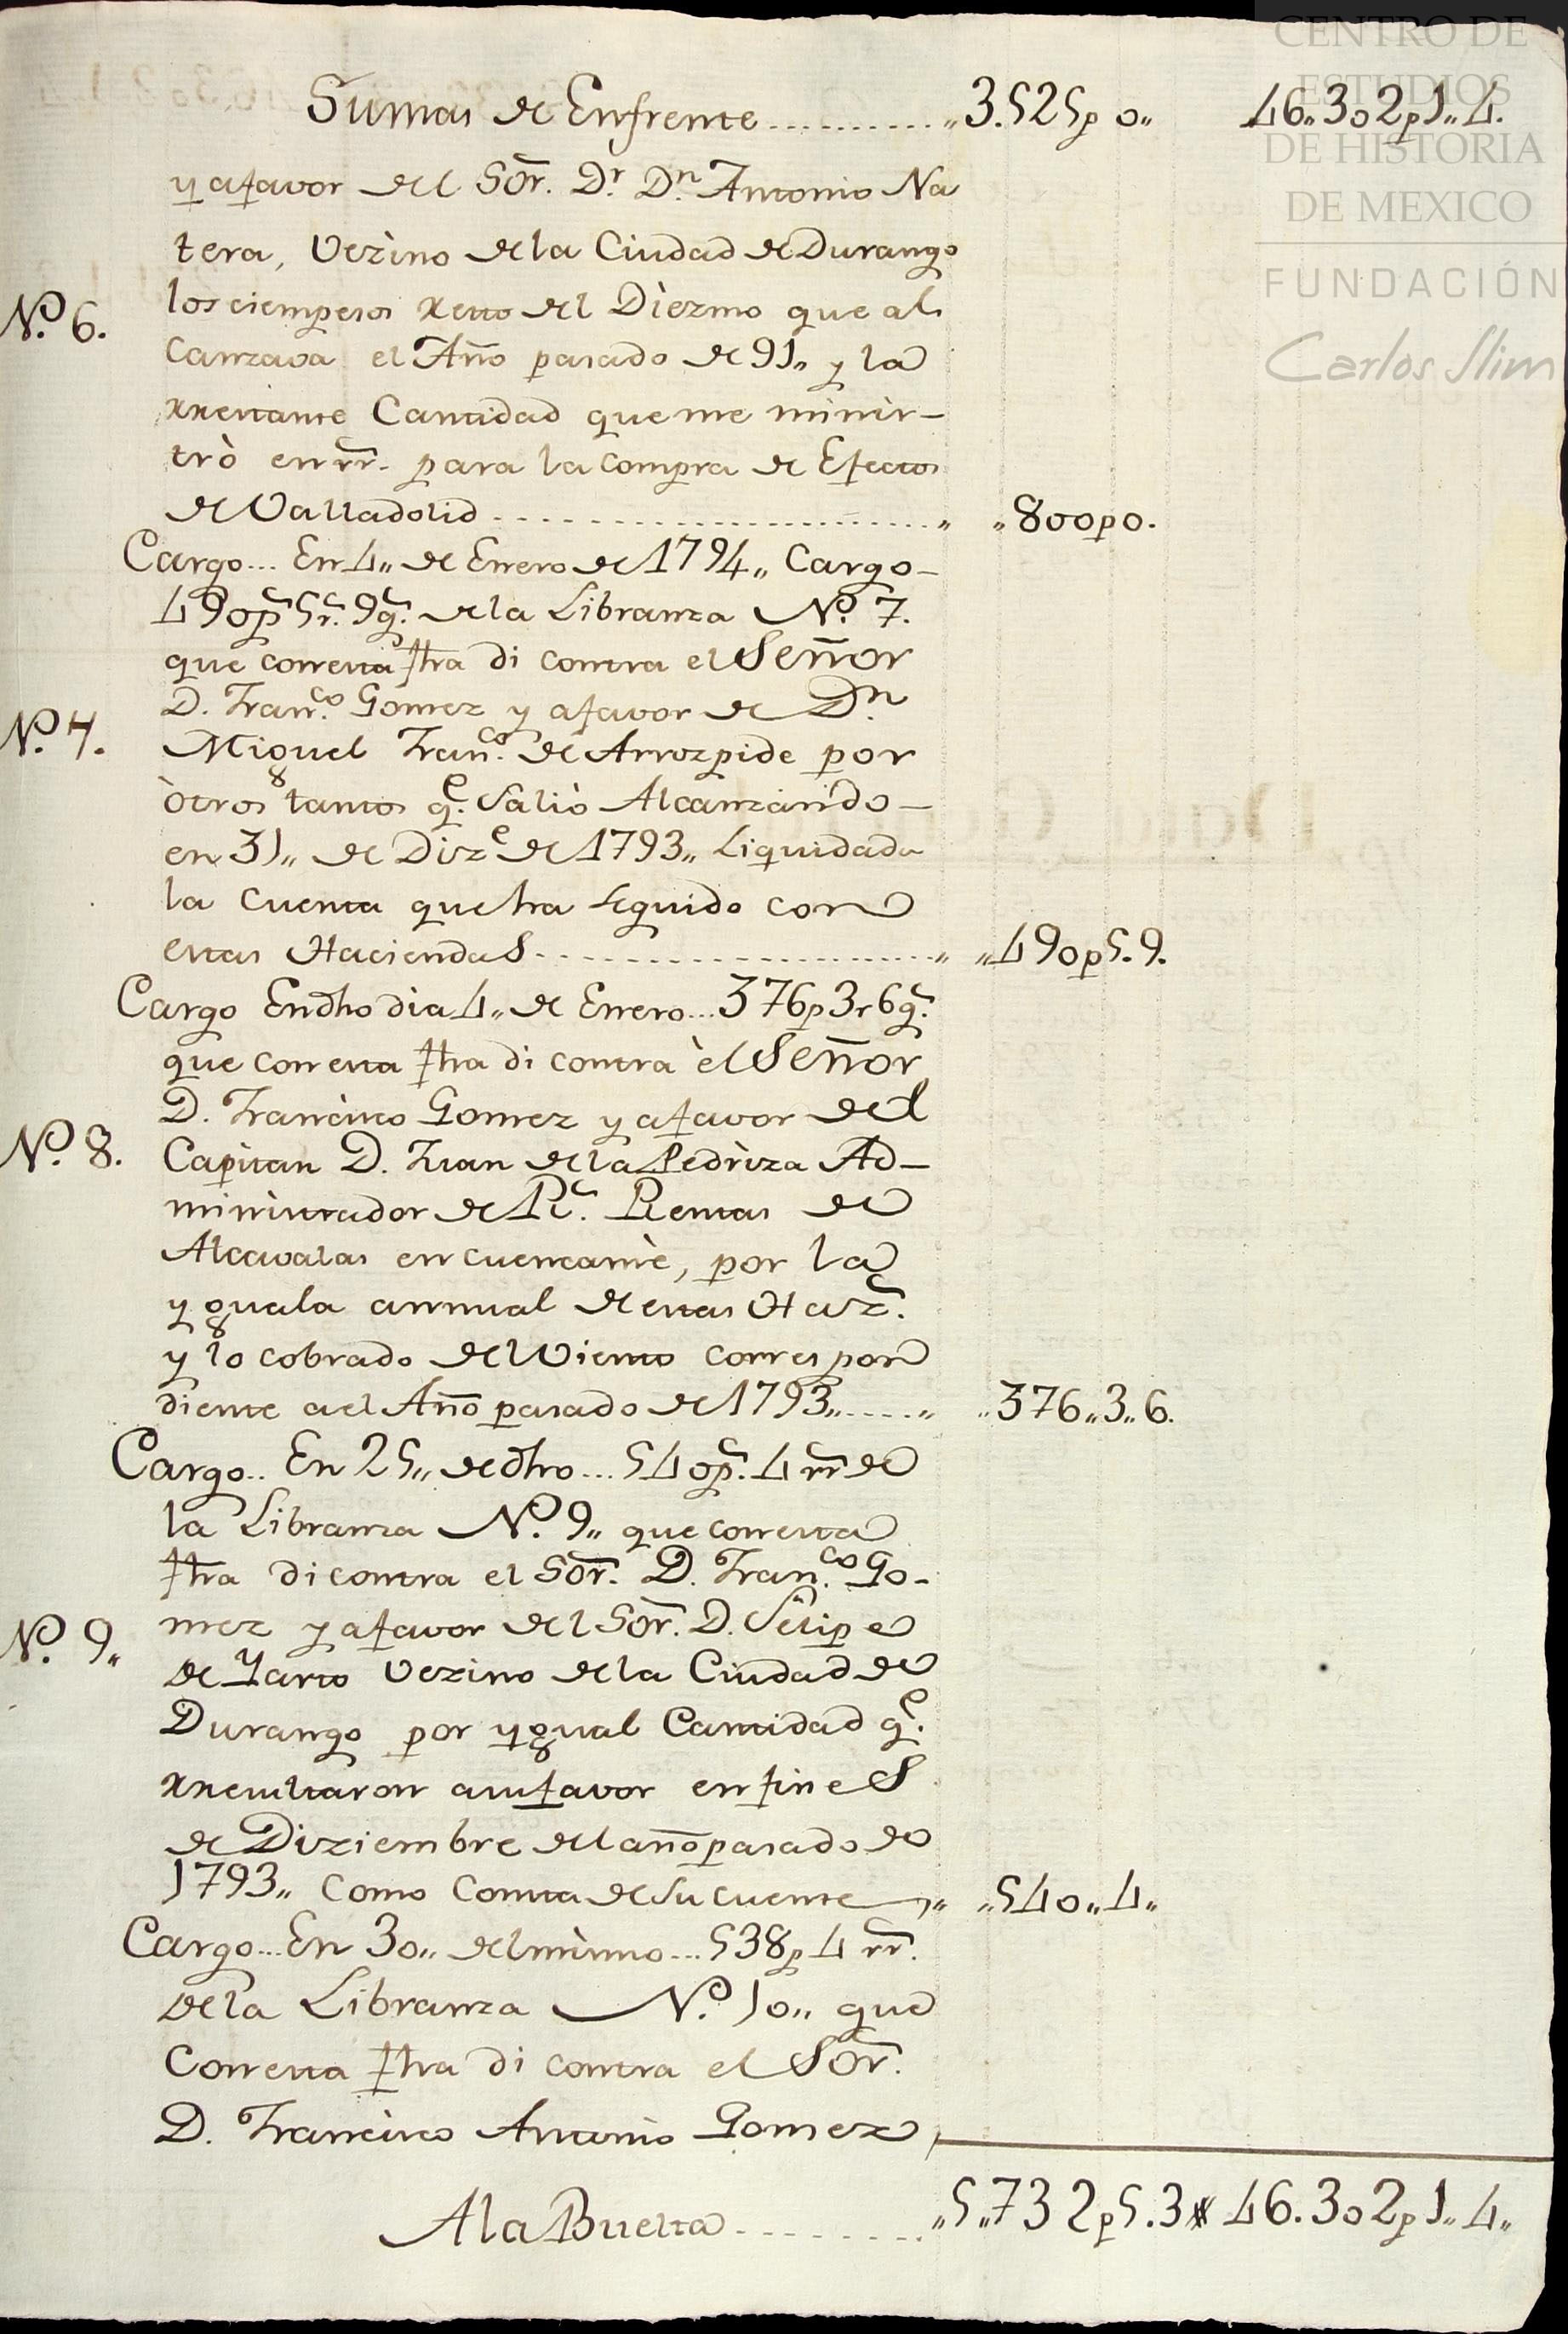 Sumas de Enfrente ........... „3.525p 0„ 46„302p1„4.
y afavor del Sõr. Dr. Dn. Antonio Na
tera, Vezino de la Ciudad de Durango
los cien pesos resto del Diezmo que al
N.o 6.
canzava el Año pasado de 91„ y la
restante Cantidad que me minis-
trò en rr̃. para la compra de Efectos
de Valladolid ........................„ „800p0.
Cargo... En 4„ de Enero de 1794„ Cargo-
490ps. 5r. 9g. de la Libranza N.o 7.
que con esta fha di contra el Señor
D. Fran.co Gomez y afavor de Dn.
N.o 7.
Miguel Fran.co de Arrozpide por
òtros tantos q.e Saliò Alcanzando-
en 31„ de Diz.e de 1793„ Liquidada
la cuenta que ha seguido con
estas HaciendaS ........................„ „490p5.9.
Cargo En dho dia 4„ de Enero... 376p3r6g.
que con esta fha di contra èl Señor
D. Francisco Gomez y afavor del
N.o 8.
Capitan D. Juan de la Pedriza Ad-
ministrador de R.s Rentas de
Alcavalas en cuencamè, por la
yguala annual de estas Haz.
y lo cobrado de Viento correspon
diente ael Año pasado de 1793„.....„ „376„3„6.
Cargo.. En 25„ de dho... 540p. 4 rr̃ de
la Libranza N.o 9„ que con esta
fha di contra el Sõr. D. Fran.co Go-
mez y afavor del Sõr. D. Felipe
N.o 9„
de Yarto Vezino de la Ciudad de
Durango por ygual Cantidad q.e
resultaron asufavor en fineS
de Diziembre del año pasado de
1793„ Como Consta de Su cuenta „ „540„4„
Cargo... En 30„ del mismo... 538p 4 rr̃.
de la Libranza N.o 10„ que
Con esta fha di contra el Sõr.
D. Francisco Antonio Gomez
A la Buelta ........... „5„732p5.3 46.302p1„4„
CENTRO DE
ESTUDIOS
DE HISTORIA
DE MEXICO
FUNDACIÓN
Carlos Slim